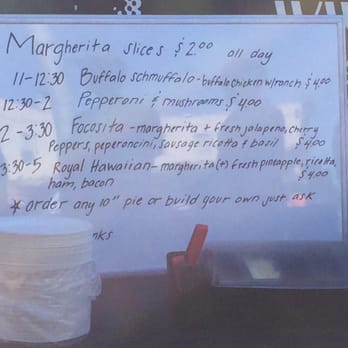 Margherita slices $2.00 all day
11-12:30 Buffalo schmuffalo-buffalo chicken w/ranch $4.00
12:30-2 Pepperoni & mushrooms $4.00
2-3:30 Focosita-margherita + fresh jalapeno, cherry
Peppers, peperoncini, sausage ricotta & basil $4.00
3:30-5 Royal Hawaiian-margherita (+) fresh pineapple, ricotta,
ham, bacon $4.00
* order any 10" pie or build your own just ask